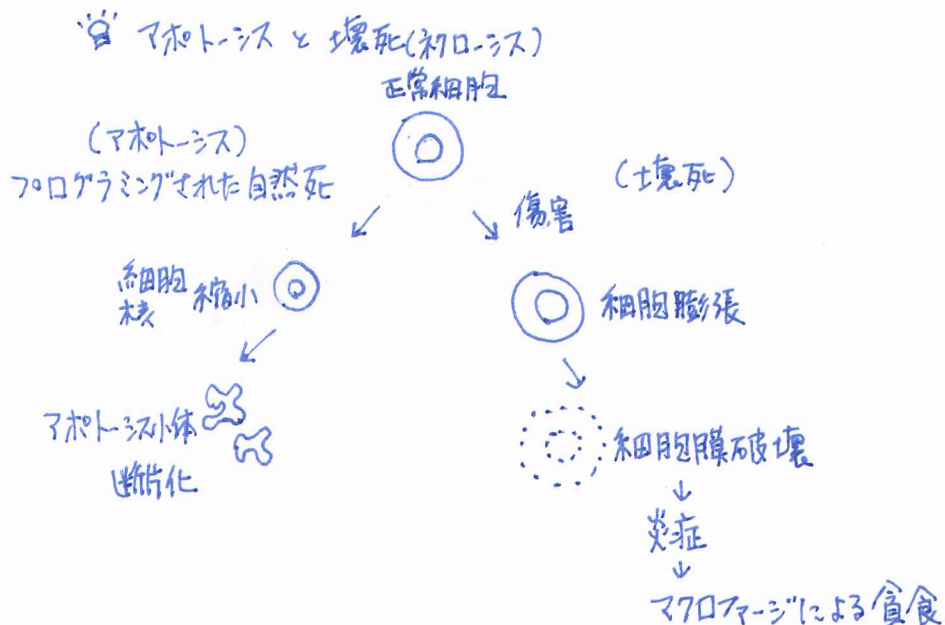 アポトーシスと壊死(ネクローシス)
正常細胞
(アポトーシス)
プログラミングされた自然死
(壊死)
傷害
細胞
核
縮小
細胞膨張
アポトーシス小体
断片化
細胞膜破壊
炎症
マクロファージによる貪食